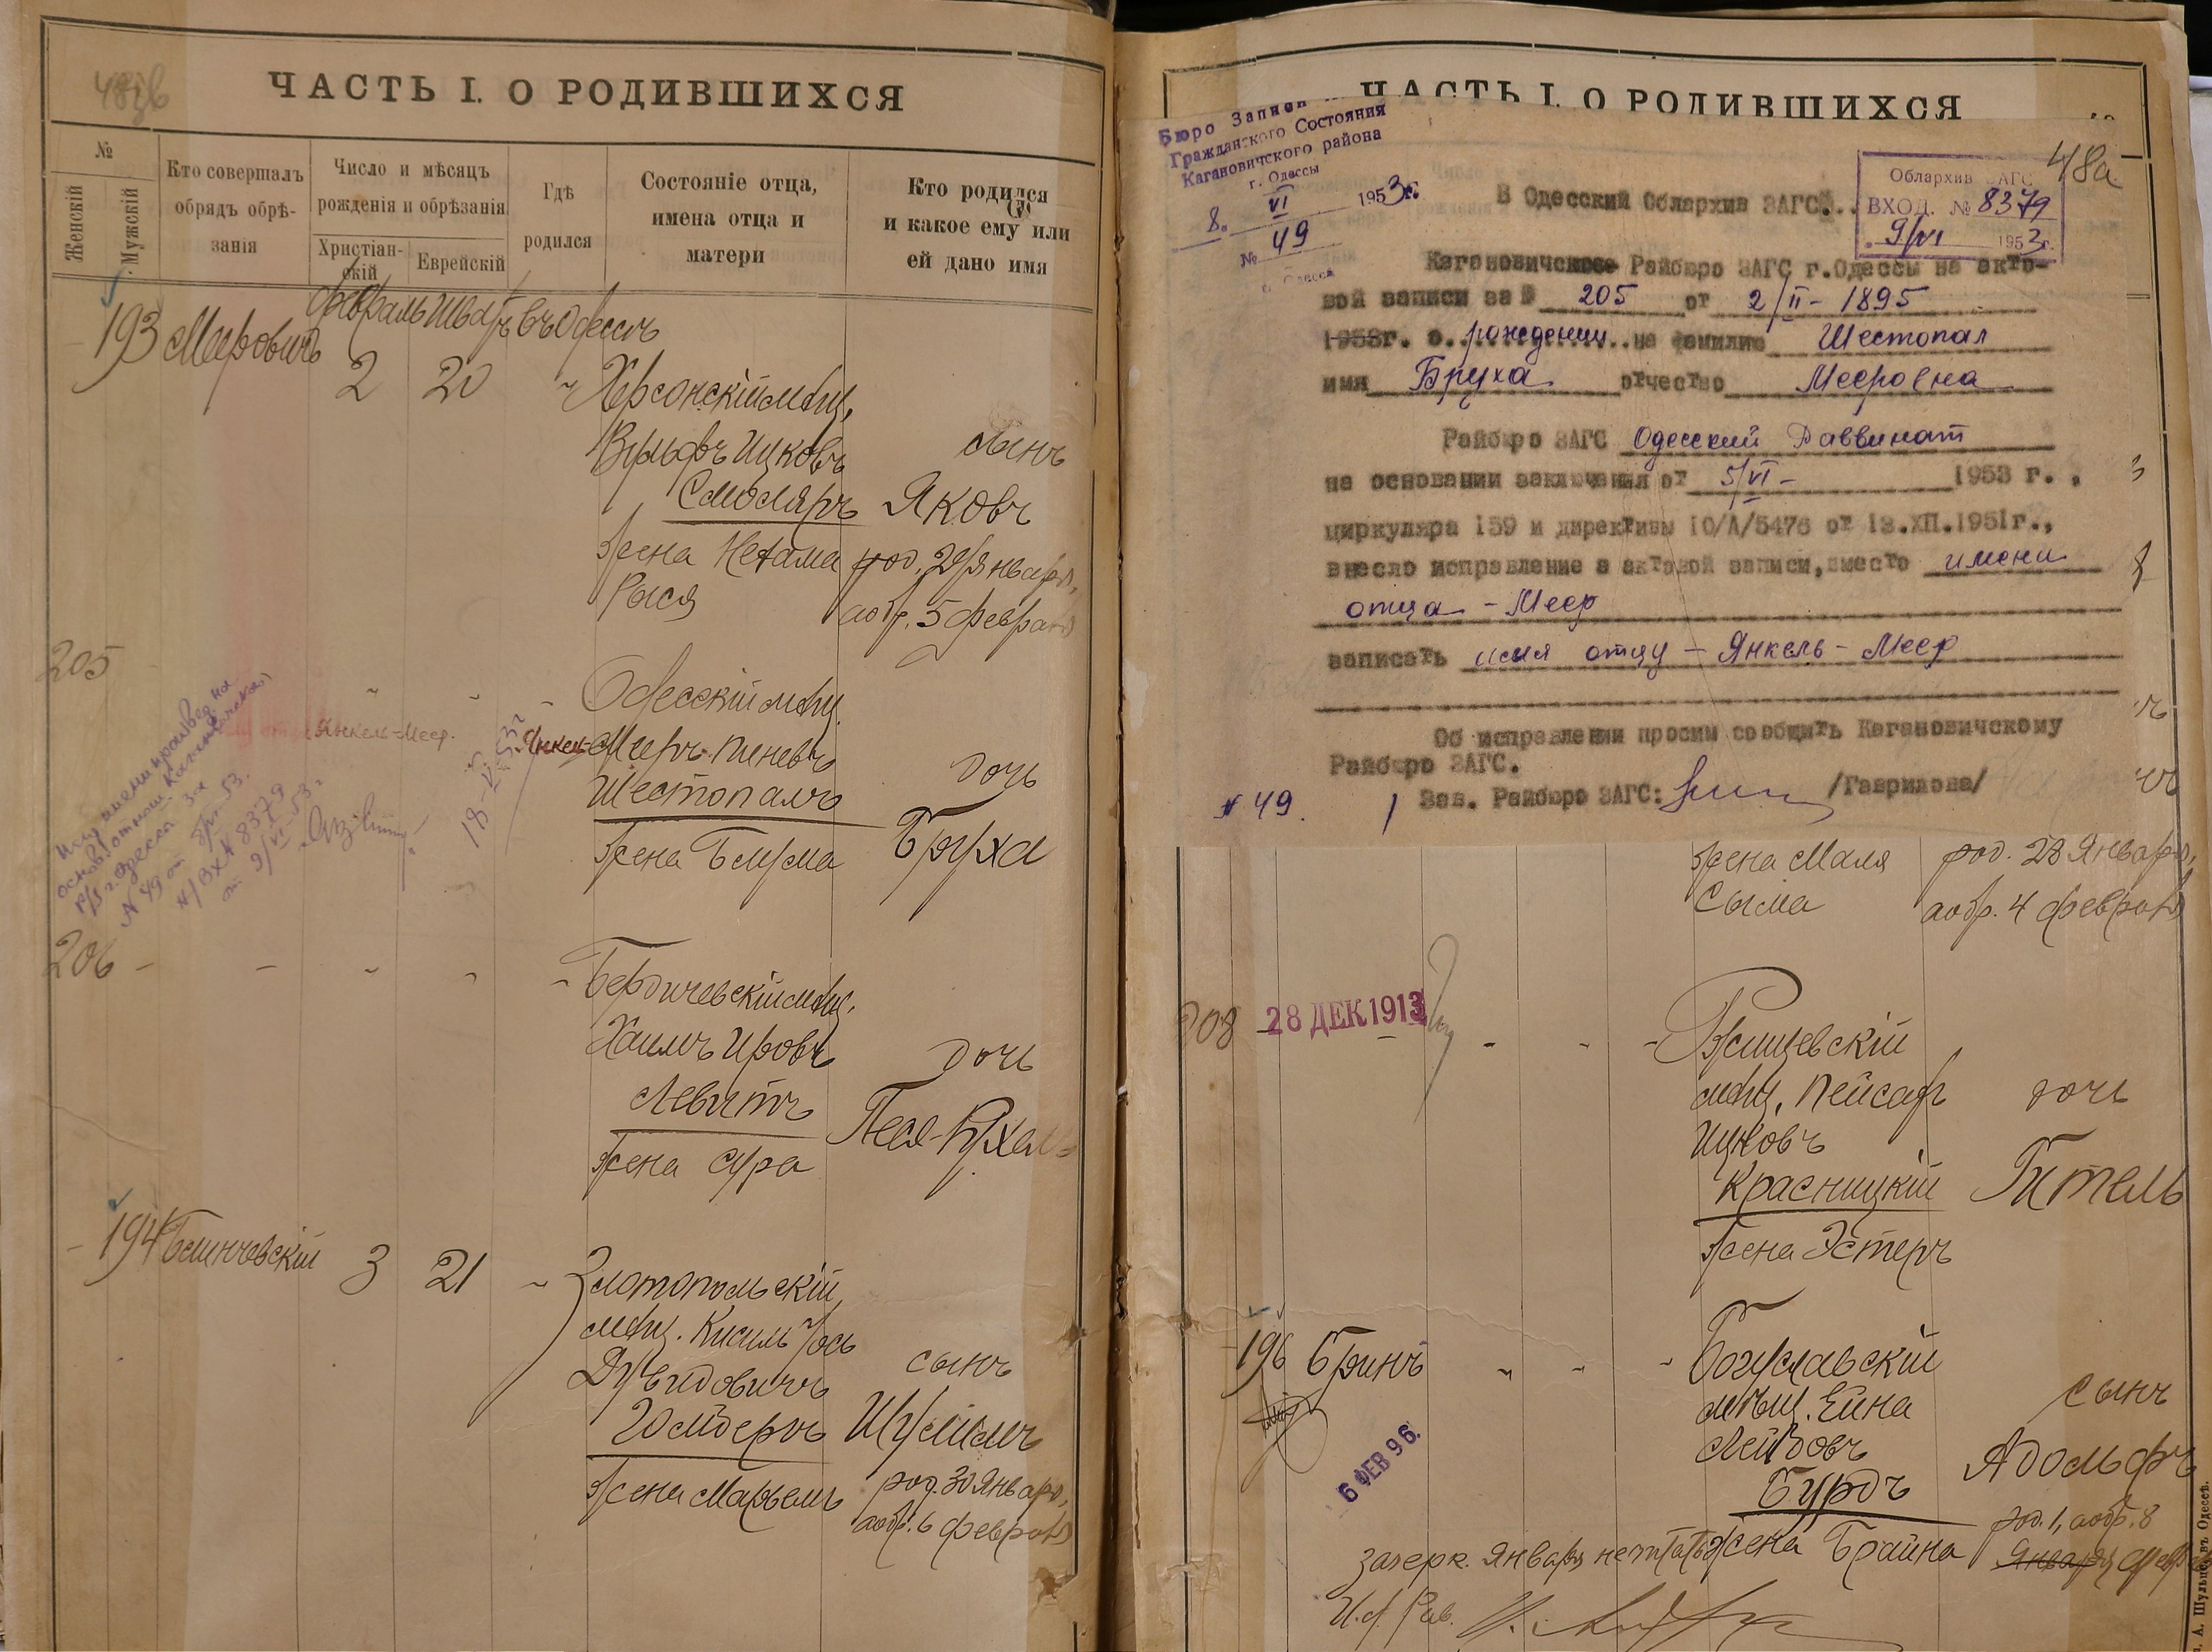 ЧАСТЬ I. О РОДИВШИХСЯ
№
Женскій
Мужскій
Кто совершалъ
обрядъ обрѣ-
занія
Число и мѣсяцъ
рожденія и обрѣзанія
Христіан-
скій
Еврейскій
Гдѣ
родился
Состояніе отца,
имена отца и
матери
Кто родился
и какое ему или
ей дано имя
Февраль Шватъ въ Одессѣ
193 Мировичъ 2 20
Херсонскій мѣщ.
Вульфъ Ицковъ
Смоляръ
жена Нехама
Рыся
сынъ
Яковъ
род. 29 января,
а обр. 5 февраля
205
Одесскій мѣщ.
Янкель-Мееръ Пиневъ
Шестопалъ
жена Блума
дочь
Бруха
Янкель-Меер.
N 49 от 8/VI 53.
Н/ВХ N 8379
от 9/VI-53 г
206
Бердичевскій мѣщ.
Хаимъ Ировъ
Левитъ
жена Сура
дочь
Песя-Рухель
194 3 21
Златопольскій
мѣщ. Кисиль Іось
Дувидовичъ
Гольдеръ
жена Марьемъ
сынъ
Шулимъ
род. 30 января,
а обр. 6 февраля
ЧАСТЬ I. О РОДИВШИХСЯ
48а
Бюро Записи
Гражданского Состояния
Кагановичского района
г. Одессы
8. VI 1953 г.
№ 49
г. Одесса
Облархив ЗАГС
ВХОД. № 8379
9/VI 1953 г.
В Одесский Облархив ЗАГС..
Кагановичское Райбюро ЗАГС г.Одессы на акто-
вой записи за № 205 от 2/II-1895
1953г. о рождении на фамилию Шестопал
имя Бруха отчество Мееровна
Райбюро ЗАГС Одесский Раввинат
на основании заключения от 5/VI- 1953 г.,
циркуляра 159 и директивы 10/А/5476 от 18.XII.1951г.,
внесло исправление в актовой записи, вместо имени
отца - Меер
записать имя отцу - Янкель-Меер
Об исправлении просим сообщить Кагановичскому
Райбюро ЗАГС.
N 49. Зав. Райбюро ЗАГС: /Гаврилова/
жена Маля
Сыма
род. 28 января,
а обр. 4 февраля
208 28 ДЕК 1913
Ржищевскій
мѣщ. Пейсах
Ицковъ
Красницкій
жена Эстеръ
дочь
Гитель
196 Гринъ
6 ФЕВ 96.
Богуславскій
мѣщ. Ейна
Лейбовъ
Бурдъ
жена Брайна
сынъ
Адольфъ
род. 1, а обр. 8
января февр
зачерк. января не читать
И.д. Рав.
А. Шульце, въ Одессѣ.